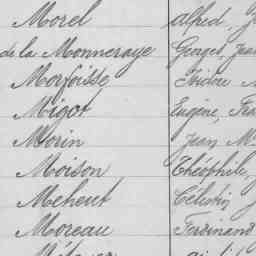 Morel Alfred, J
de la Monneraye Georges, Jean
Morfoisse Isidore
Migot Eugène, Fra
Morin Jean M
Moison Théophile,
Meheut Célestin J
Moreau Ferdinand